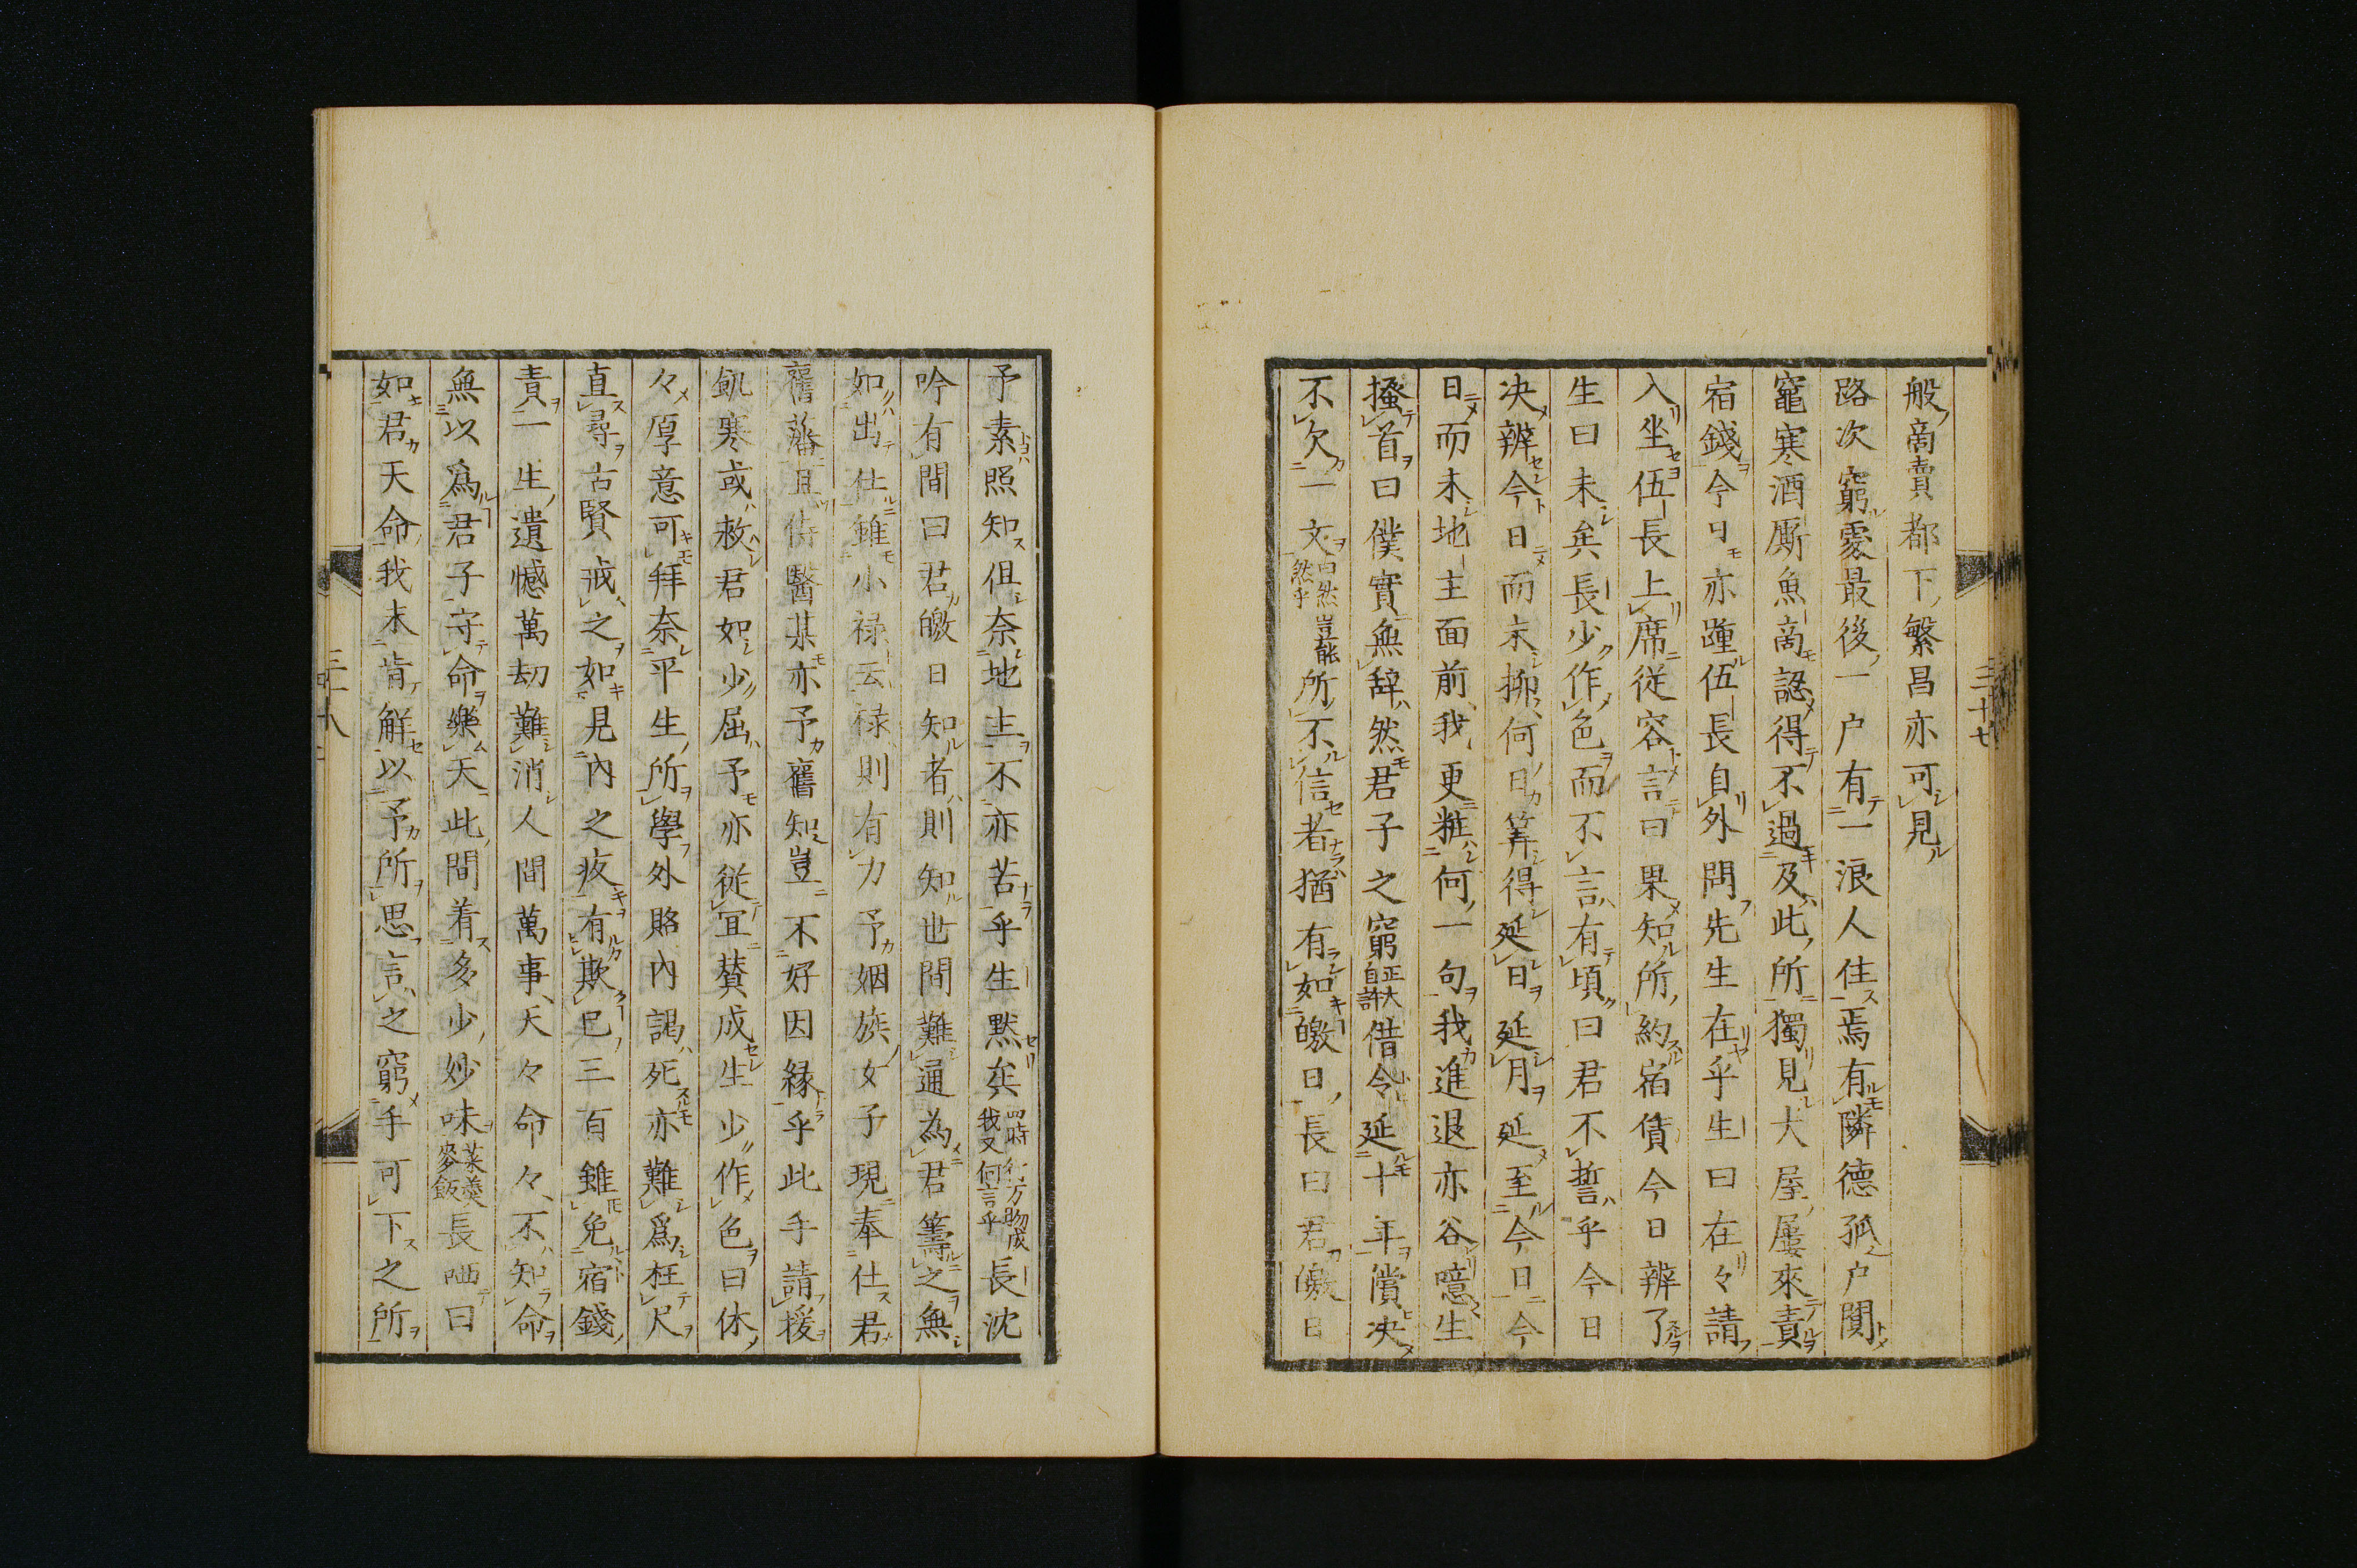 般商賣都下繁昌亦可見
路次窮處最後一户有一浪人住焉有隣德孤户闃
竈寒酒厮魚商認得不過及此所獨見大屋屢來責
宿錢今日亦踵伍長自外問先生在乎生曰在々請
入坐伍長上席従容言曰果知所約宿債今日辨了
生曰未矣長少作色而不言有頃曰君不誓乎今日
决辨今日而未揶何日筭得延日延月延至今日今
日而未地主面前我更粧何一句我進退亦谷噫生
搔首曰僕實無辞然君子之窮正大自許借令延十年償决
不欠一文曰然然乎豈能所不信者猶有如皦日長曰君皦日
三十七
予素照知但奈地主不亦苦乎生默矣四時行万物成我又何言乎長沈
吟有間曰君皦日知者則知世間難通為君籌之無
如出仕雖小禄云禄則有力予姻族女子現奉仕君
舊藩且侍醫某亦予舊知豈不好因縁乎此手請援
飢寒或救君如少屈予亦従冝賛成生少作色曰休
々厚意可拜奈平生所學外賂内謁死亦難爲枉尺
直尋古賢戒之如見内之疚有欺已三百雖免宿錢
責一生遺憾萬劫難消人間萬事天々命々不知命
無以爲君子守命樂天此間着多少妙味菜羹麥飯長哂曰
如君天命我未肯解以予所思言之窮手可下之所
三十八